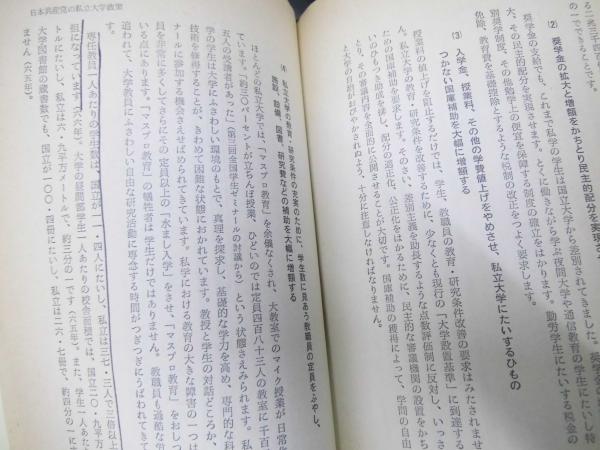 の一つでできることです。
(2) 奨学金の拡大と増額をかちとり民主的配分を実現さ
奨学金の支給でも、これまで私学の学生は国立大学から差別されてきました。奨学金
大、その民主的配分を実現させます。とくに働きながら学ぶ夜間大学や通信教育の学生にたいし特
別奨学制度、その他勉学上の便宜を保障する制度の確立をはかります。勤労学生にたいする税金の
免除、教育費を基礎控除とするような税制の改正をつよく要求します。
(3) 入学金、授業料、その他の学費値上げをやめさせ、私立大学にたいするひもの
つかない国庫補助を大幅に増額する
授業料の値上げを阻止するだけでは、学生、教職員の教育・研究条件改善の要求はみたされませ
ん。私立大学の教育・研究条件を改善するために、少なくとも現行の「大学設置基準」に到達する
ための国庫補助を要求します。そのさい、差別主義を助長するような点数評価制に反対し、いっさ
いのひもつき助成を排し、配分の適正化、公正化をはかるために、民主的な審議機関の設置をかち
とり、その審議内容を全面的に公開させることが大切です。国庫補助の獲得によって、学問の自由
と大学の自治がおびやかされぬよう、十分に注意しなければなりません。
日本共産党の私立大学政策
(4) 私立大学の教育・研究条件の充実のために、学生数に見あう教職員の定員をふやし、
施設、設備、図書、研究費などの補助を大幅に増額する
ほとんどの私立大学では、「マスプロ教育」を余儀なくされ、大教室でのマイク授業が日常化
ています。「約三〇パーセントが立ちんぼ授業、ひどいのでは定員四百八十三人の教室に千百
五人の受講者があった」(第三回全国学生ゼミナールの討議から)という状態さえみられます。
学の学生は大学にふさわしい環境のもとで、真理を探求し、基礎的な学力を高め、専門的な科
技術を修得することが、きわめて困難な状態におかれています。教授と学生の対話どころか、
ナールに参加する機会さえせばめられてきています。私学における教育の大きな障害の一つは
員を非常に多くしてさらにその定員以上の「水まし入学」をさせ、「マスプロ教育」をおしつ
いる点にあります。「マスプロ教育」の犠牲者は学生だけではありません。教職員も過酷な労
追われて、大学教員にふさわしい自由な研究活動に専念する時間がつぎつぎにうばわれてきて
専任教員一人あたりの学生数は、国立が一一・四人にたいし、私立は三七・三人で三倍以上
担になっています(六六年)。大学の昼間部学生一人あたりの校舎面積では、国立二〇・九平方メ
トルにたいし、私立は六・九平方メートルで、約三分の一です(六五年)。また、学生一人あた
大学図書館の蔵書数でも、国立が一〇〇・四冊にたいし、私立は二六・七冊で、約四分の一に
ません(六五年)。